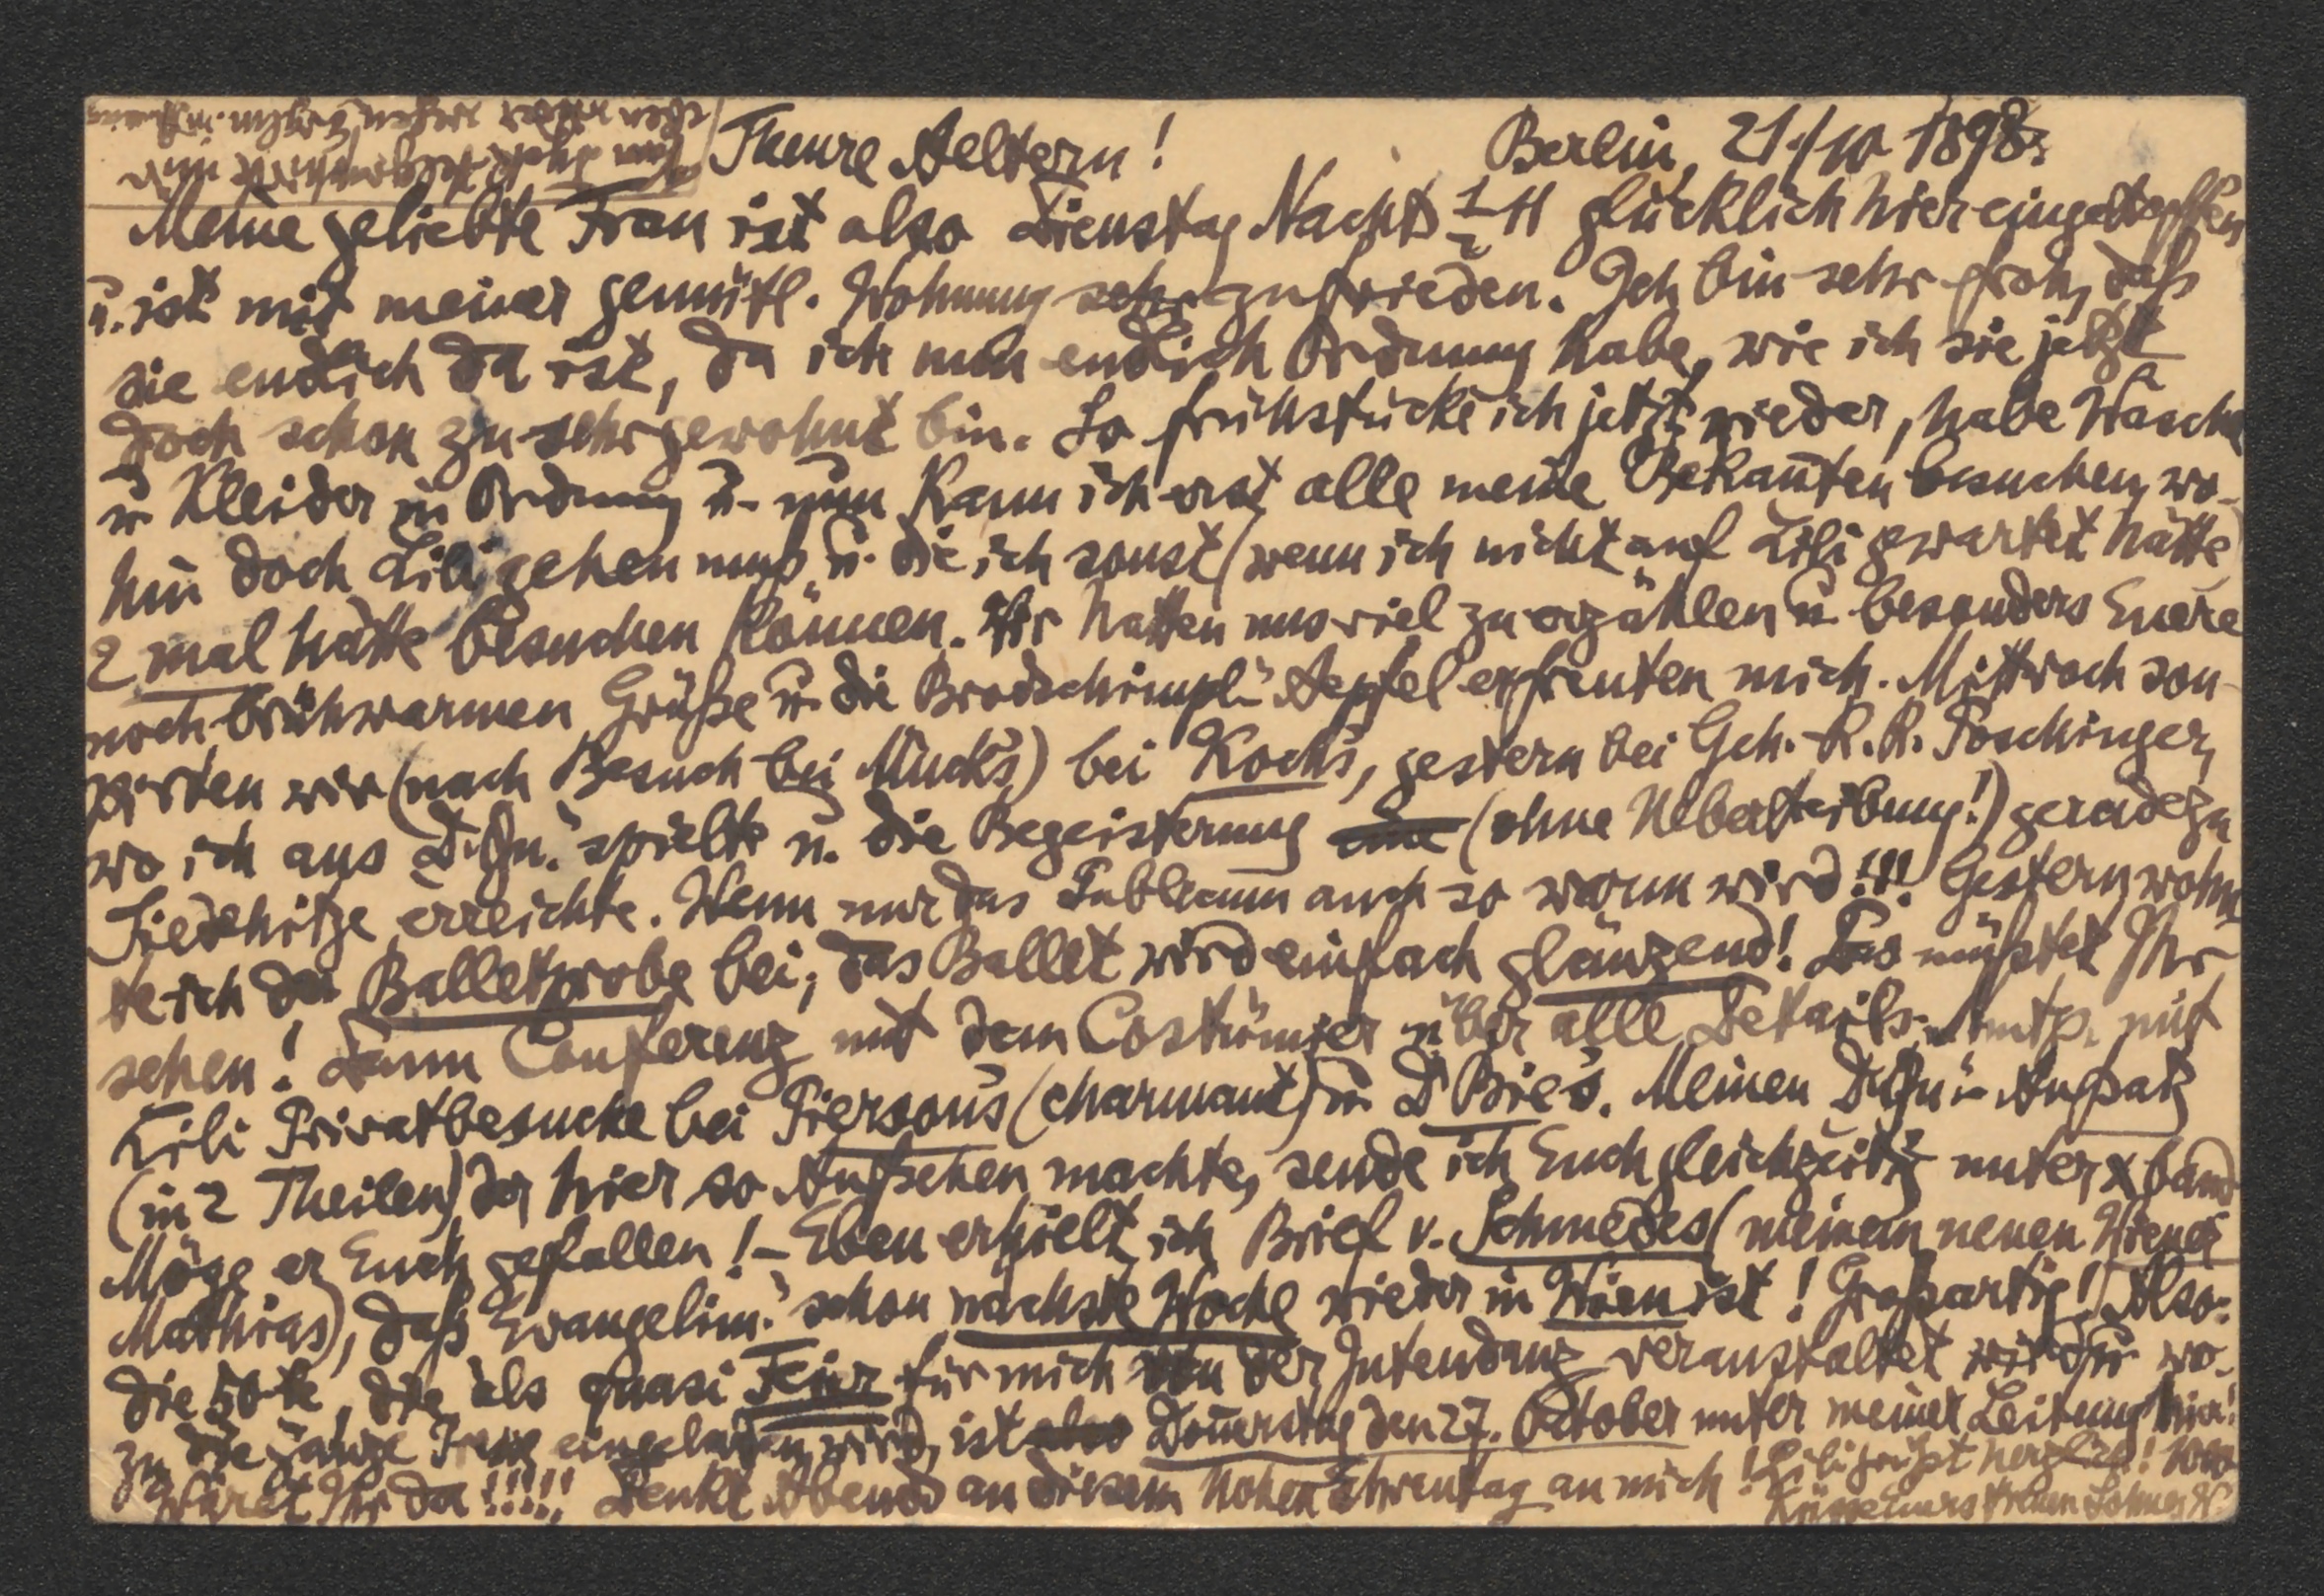 Theure Aeltern! Berlin, 21./10 1898.
Meine geliebte Frau ist also Dienstag Nachts ½ 11 glücklich hier eingetroffen
u. ist mit meiner gemütl. Wohnung sehr zufrieden. Ich bin sehr froh, daß
sie endlich da ist, da ich nun endlich Ordnung habe, wie ich sie jetzt
doch schon zu sehr gewohnt bin. So frühstücke ich jetzt wieder, habe Wäsche
u Kleider in Ordnung u. nun kann ich erst alle meine Bekañten besuchen, wo-
hin doch Lili gehen muß u. die ich sonst (wenn ich nicht auf Lili gewartet hätte)
2 mal hätte besuchen können. Wir hatten uns viel zu erzählen u. besonders Euere
noch brühwarmen Grüße u. die Aepfel erfreuten mich. Mittwoch sou-
pirten wir (nach Besuch bei Mucks) bei Koch's, gestern bei Geh. R. R. Poschinger,
wo ich aus D. Qu." spielte u. die Begeisterung (ohne Uebertreibung!) geradezu
Siedehitze erreichte. Wenn nur das Publicum auch so warm wird!!! Gestern wohn
te ich der Balletprobe bei; das Ballet wird einfach glänzend! Das müßtet Ihr
sehen! Dann Conferenz mit dem Costümier über alle Details. mit
Lili Privatbesuche bei Pierson's (charmant) u. Dr Bie's. Meinen D. Qu." Aufsatz
(in 2 Theilen) der hier so Aufsehen machte, sende ich Euch gleichzeitig unter x band
Möge er Euch gefallen! – Eben erhielt ich Brief v. Schmedes (meinem neuen Wiener
Mathias), daß Evangelim." schon nächste Woche wieder in Wien ist! Großartig! Also:
die 50te, die als quasi Feier für mich von der Intendanz veranstaltet wird u. wo-
zu die ganze eingeladen wird, ist Doñerstag den 27. October unter meiner Leitung hier!
Wäret Ihr da!!!!! Denkt Abends an diesem hohen Ehrentag an mich! Lili grüßt herzlich!
Küsse Eures treuen Sohnes W.